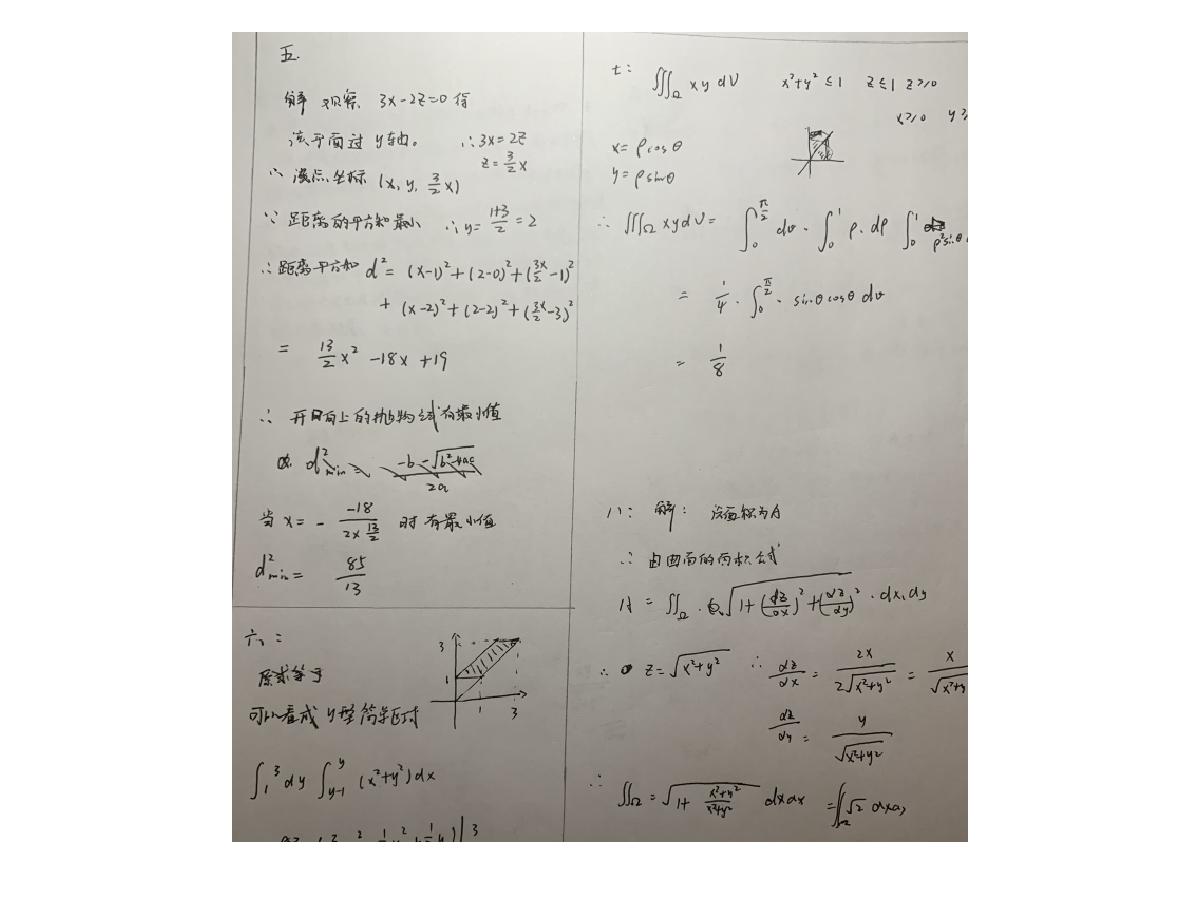 五.
解 观察 3x-2z=0 得
该平面过 y轴。 ∴3x=2z
z=\frac{3}{2}x
∴ 设点坐标 (x, y, \frac{3}{2}x)
∵ 距离的平方和最小 ∴y=\frac{1+3}{2}=2
∴距离平方和 d^2= (x-1)^2+(2-0)^2+(\frac{3x}{2}-1)^2
+ (x-2)^2+(2-2)^2+(\frac{3x}{2}-3)^2
= \frac{13}{2}x^2 -18x +19
∴ 开口向上的抛物线有最小值
d^2_{min}= \frac{-b-\sqrt{b^2-4ac}}{2a}
当 x= - \frac{-18}{2×\frac{13}{2}} 时有最小值
d^2_{min}= \frac{85}{13}
六:
原式等于
可以看成 y型简单区域
3
1
1 3
∫_1^3 dy ∫_{y-1}^y (x^2+y^2)dx
七: ∭_Ω xy dV x^2+y^2≤1 z≤1 z≥0
x≥0 y≥
x=ρcosθ
y=ρsinθ
∴ ∭_Ω xydV= ∫_0^{\frac{π}{2}} dθ · ∫_0^1 ρ·dρ ∫_0^1 ρ^2sinθ
= \frac{1}{4} · ∫_0^{\frac{π}{2}} · sinθcosθ dθ
= \frac{1}{8}
八: 解: 设面积为A
∴ 由曲面的面积公式
A = ∬_Ω · \sqrt{1+(\frac{dz}{dx})^2+(\frac{dz}{dy})^2} · dx,dy
∴ z=\sqrt{x^2+y^2} ∴ \frac{dz}{dx}= \frac{2x}{2\sqrt{x^2+y^2}} = \frac{x}{\sqrt{x^2+y
\frac{dz}{dy}= \frac{y}{\sqrt{x^2+y^2}}
∴ ∬_Ω =\sqrt{1+\frac{x^2+y^2}{x^2+y^2}} dxdx =∬_Ω \sqrt{2} dxdy